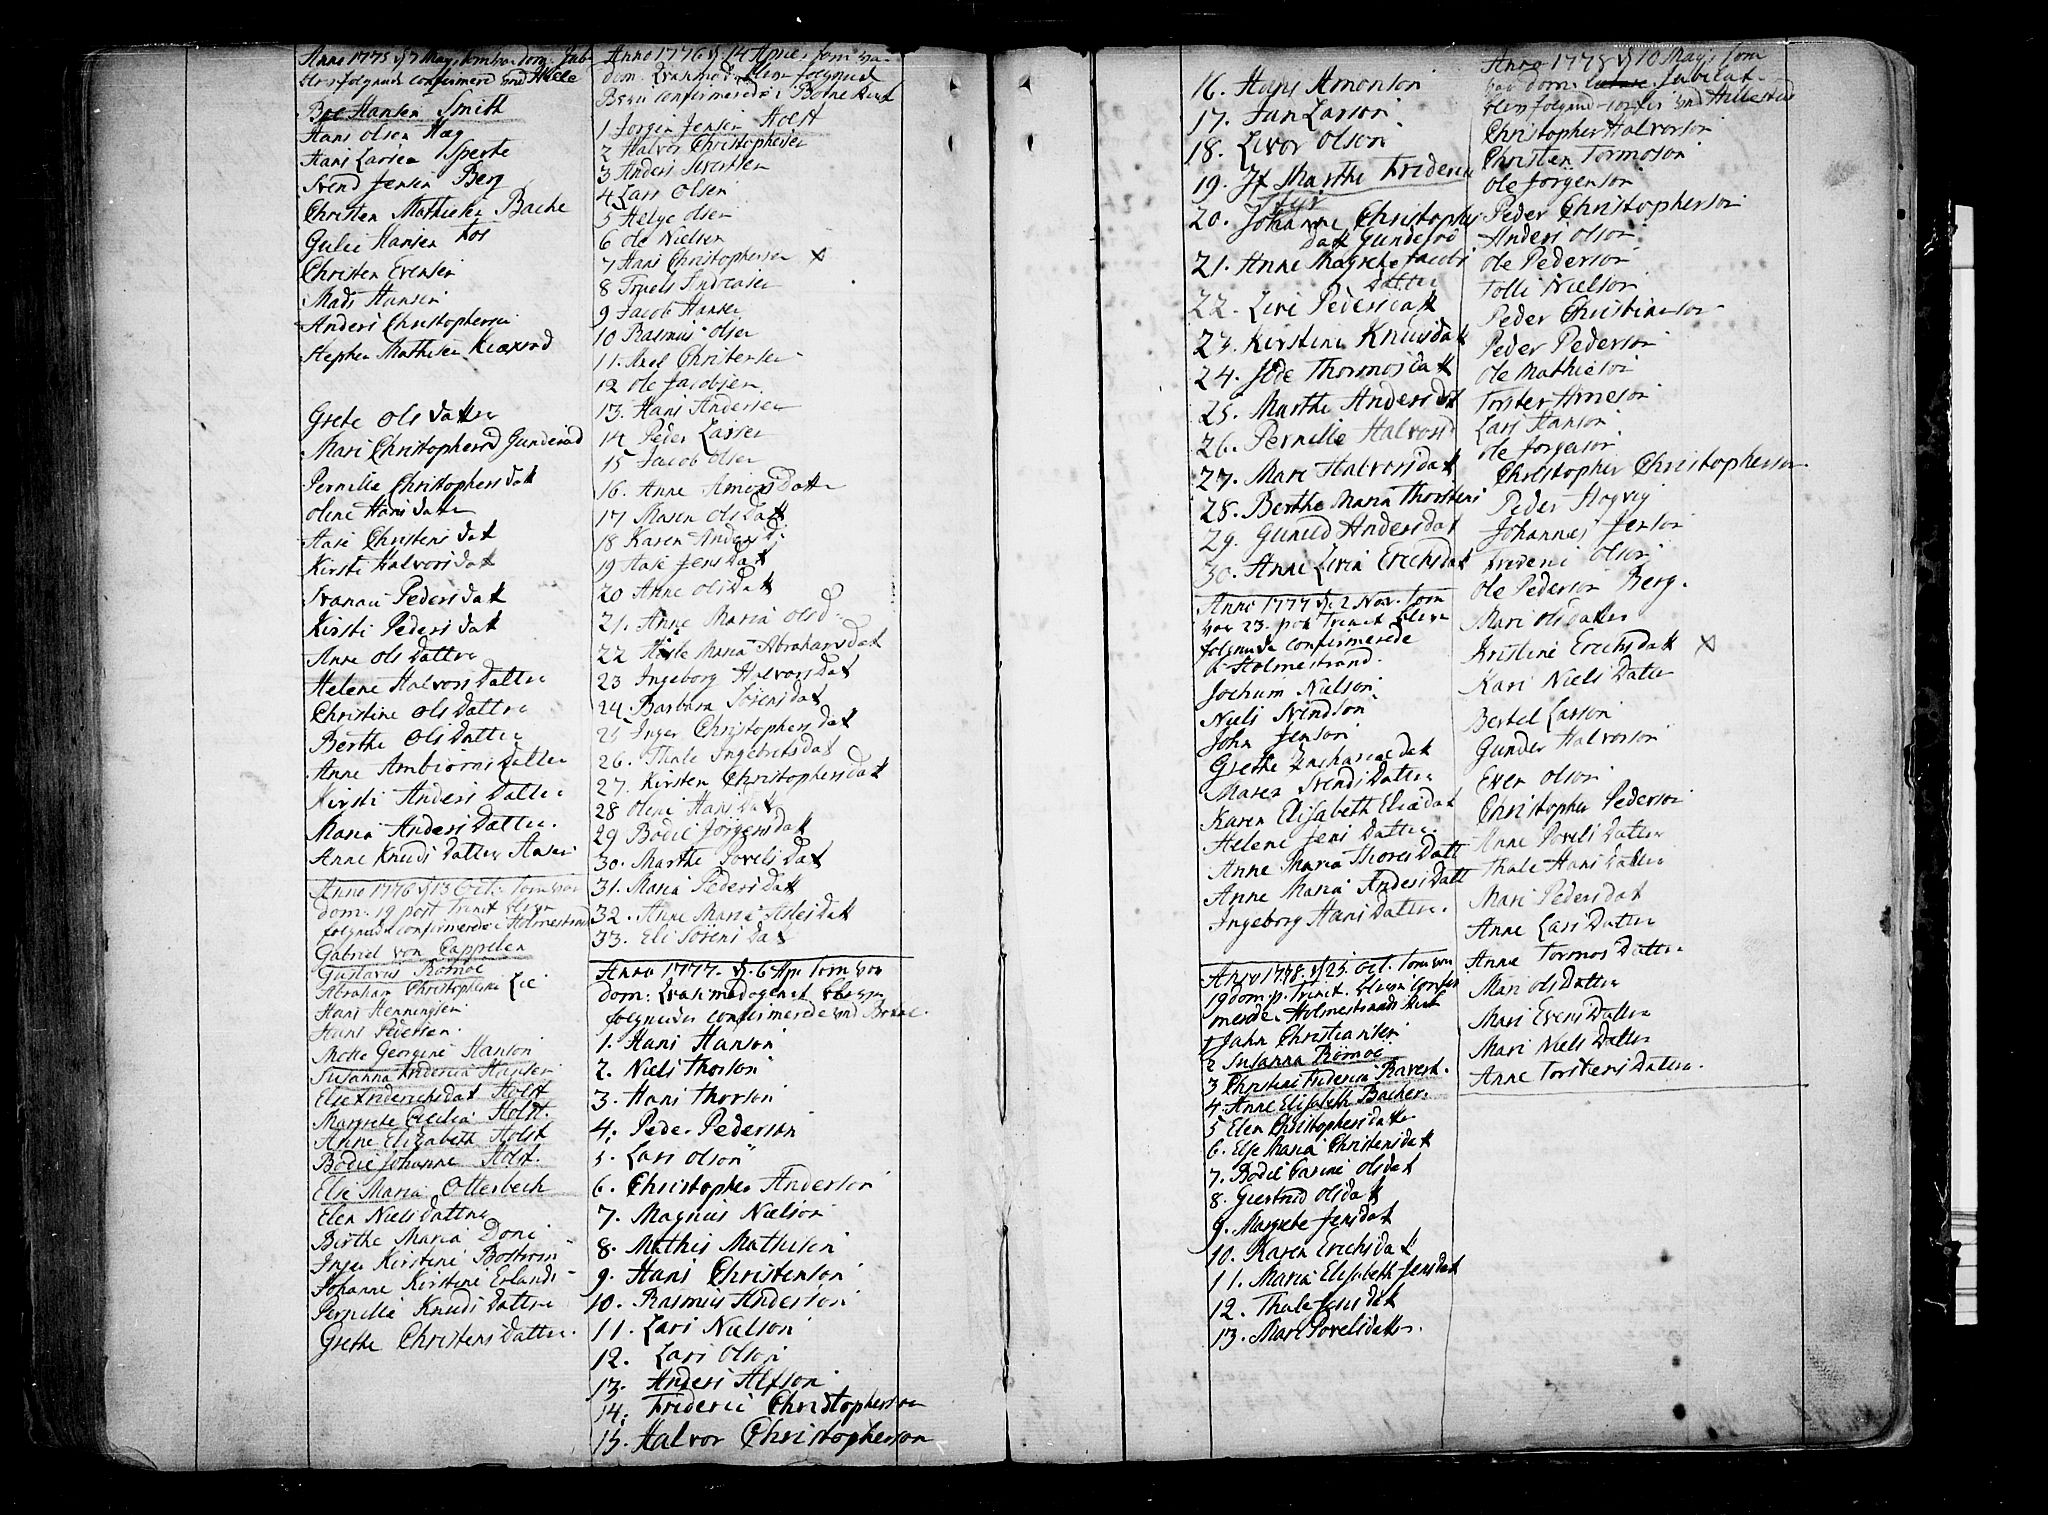 Anno 1775 d 7 Maj, som var dom. Jub
blev folgende confirmered ved Hille
Boe Hansen Smith
Hans Olsen Hæg
Hans Larsen Sperte
Svend Jensen Berg
Christen Mathiesen Bache
Gulic Hansen Fos
Christen Evensen
Mads Hansen
Anders Christophersen
Stephen Mathisen
Grete Ols datter
Mari Christophersd Gunderød
Pernille Christophers datt
Olene Hans datter
Aase Christens dat
Kirsti Halvors dat
Svanau Peders dat
Kirsti Peders dat
Anne Ols datter
Helene Halvors datter
Christine Ols datter
Berthe Ols datter
Anne Ambiørns datter
Kirsti Anders datter
Maria Anders datter.
Anne Knuds datter Aasen
Anno 1776 d 13 Oct. som var
dom. 19 post Trinit blev
folgende confirmerede i Holmestrand
Gabriel von Cappelen
Gustavus Rømoe
Abraham Christophersen Lie
Hans Henningsen
Hans Petersen.
Mette Georgine Hanson
Susanna Fridericia Hansen
Else Friderichsdat Holst
Margrete Cecilia Holst.
Anne Elizabeth Holst
Bodil Johanne Holst.
Else Maria Otterbech
Elen Niels datter
Birthe Maria Doni
Inger Kirstine Bostrøm
Johanne Kirstine Erlands
Pernille Knuds datter
Grethe Christens datter.
Anno 1776 d 14 April som var
dom. Qvasimod. blev folgende
Børn confirmerede i Botne Kirk
1 Jørgen Jensen Holst
2 Halvor Christophersen
3 Anders Sivertsen
4 Lars Olsen
5 Helge Olsen
6 Ole Nielsen
7 Hans Christophersen x
8 Truels Andreasen
9 Jacob Hansen
10 Rasmus Olsen
11. Axel Christensen
12 Ole Jacobsen
13. Hans Andersen
14 Peder Larsen
15 Jacob Olsen
16. Anne Amons datter
17 Maren Ols datt
18 Karen Anders d:
19 Aase Jens datt
20 Anne Ols datt
21. Anne Maria Olsd.
22 Maria Abrahams dat
23 Ingeborg Halvors dat
24 Barbara Sørens dat
25 Inger Christophers dat
26. Thale Ingebrets dat
27. Kirsten Christophers dat
28 Oleni Hans dat
29 Bodil Jørgens datt
30. Marthe Povels dat
31. Maria Peders datt
32. Anne Maria Asles dat
33. Eli Sørens dat
Anno 1777. d. 6 Apr som var
dom: Qvasimodogenit. bleven
folgende confirmerede ved Botne.
1. Hans Hanson
2. Niels Thorson
3. Hans Thorson
4. Peder Pederson
5. Lars Olson
6. Christopher Anderson
7. Magnus Nielson
8. Mathis Mathison
9. Hans Christenson
10. Rasmus Anderson
11. Lars Nielson
12. Lars Olson
13. Anders Alfson
14. Frideric Christopherson
15. Halvor Christopherson
16. Hans Amonson
17. Jan Larson
18. Livor Olson
19. Jf Marthe Frideric
Styr
20. Johanne Christophers
datt Gunderød
21. Anne Magrete Jacobs
datter
22. Live Pedersdatt
23. Kirstine Knudsdatt
24. Jøde Thormosdatt
25. Marthe Andersdat
26. Pernille Halvorsd
27. Mari Halvorsdatt
28. Berthe Maria Thorstens
29. Gunild Andersdat
30. Anne Livia Erichsdat
Anno 1777 d. 2 Nov. som
var 23. post Trinit bleve
folgende confirmerede
i Holmestrand.
Jochum Nielson
Niels Svindson
John Jenson
Grethe Zachariæ dat
Maren Svends datter
Karen Elisabeth Eliædat
Helene Jens datter.
Anne Maria Thores datt
Anne Maria Anders datt
Ingeborg Hans datter.
Anno 1778. d 25. Oct. som var
19 dom. p. Trinit. bleven confir
merede i Holmestrands Kirk
1 Jahn Christiansen
2 Susanna Rømoe
3 Christine Friderica Ravert.
4. Anne Elisabeth Bacher.
5 Elen Christophersdatter
6. Else Maria Christensdatt
7. Bodil Carine Olsdat
8. Giertrud Olsdatt
9. Margrete Jensdat
10. Karen Erichsdatt
11. Maria Elisabeth Jensdat
12. Thale Jens datt
13. Mari Povelsdatter.
Anno 1778 d 10 Maj, som
var dom. Jubilat.
blev folgend confir ved Hillestad
Christopher Halvorson
Christen Tormoson
Ole Jørgenson
Peder Christopherson
Anders Olson
Ole Pederson
Tolle Nielson
Peder Christenson
Peder Pederson
Ole Mathieson
Torster Arneson
Lars Hanson
Ole Jørgenson
Christopher Christopherson.
Peder Hogvig
Johannes Jenson
Frideric Olson
Ole Pederson Berg.
Mari Olsdatter
Kristine Erichsdatt x
Kari Niels datter
Bertel Larson
Gunder Halvorson
Even Olson
Christopher Pederson
Anne Povels datter
Thale Hans datter
Mari Peders dat
Anne Lars datter
Anne Tormos datter
Mari Ols datter
Mari Evens datter
Mari Niels datter
Anne Torstens datter.